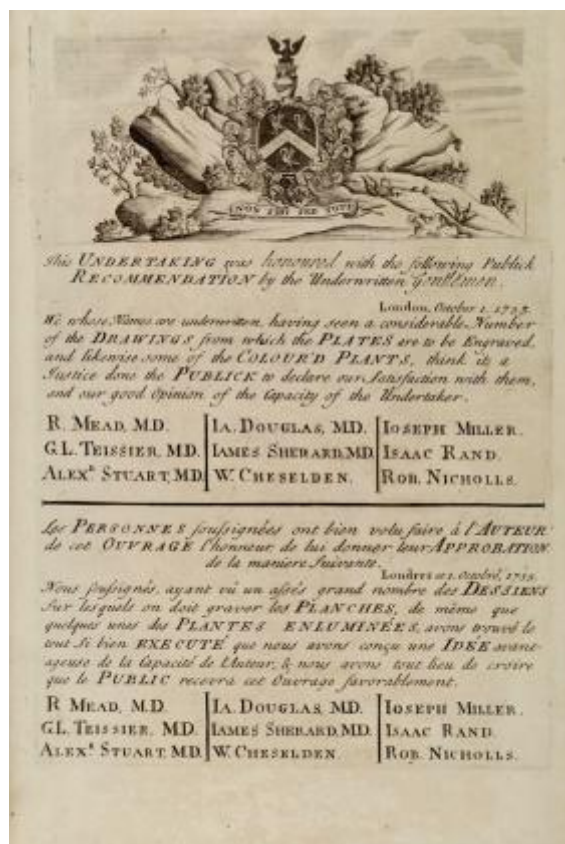 NON SIBI SED TOTI
This UNDERTAKING was honoured with the following Publick
RECOMMENDATION by the Underwritten Gentlemen.
London, October 1. 1735.
We whose Names are underwritten, having seen a considerable Number
of the DRAWINGS from which the PLATES are to be Engraved,
and likewise some of the COLOUR'D PLANTS, think it a
Justice done the PUBLICK to declare our Satisfaction with them,
and our good Opinion of the Capacity of the Undertaker.
R. MEAD, M.D. IA. DOUGLAS, M.D. IOSEPH MILLER.
G.L. TEISSIER, M.D. IAMES SHERARD, M.D. ISAAC RAND.
ALEXR. STUART, M.D. W. CHESELDEN. ROB. NICHOLLS.
Les PERSONNES soussignées ont bien volu faire à l'AUTEUR
de cet OUVRAGE l'honneur de lui donner leur APPROBATION
de la maniere suivante.
Londres ce 1. Octobré, 1735.
Nous soussignés, ayant vû un assés grand nombre des DESSIENS
sur lesquels on doit graver les PLANCHES, de même que
quelques unes des PLANTES ENLUMINÉES, avons trouvé le
tout si bien EXECUTÉ que nous avons conçu une IDÉE avant-
ageuse de la Capacité de l'Auteur, & nous avons tout lieu de croire
que le PUBLIC recevra cet Ouvrage favorablement.
R MEAD, M.D. IA. DOUGLAS, M.D. IOSEPH MILLER.
G.L. TEISSIER, M.D. IAMES SHERARD, M.D. ISAAC RAND.
ALEXR. STUART M.D. W. CHESELDEN. ROB. NICHOLLS.